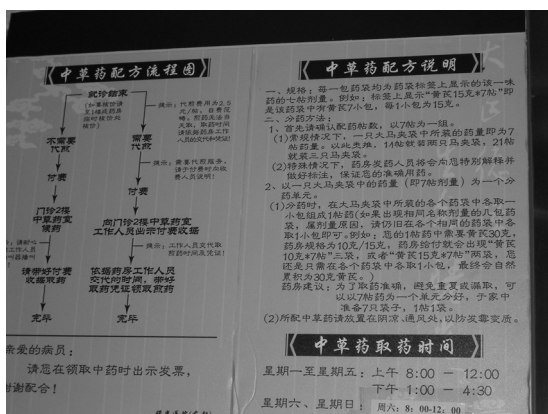 中草药配方流程图
就诊结束
不需要
代煎
需要
代煎
付费
付费
门诊2楼
中草药室
候药
向门诊2楼中草药室
工作人员出示付费收据
请带好付费
收据取药
依据药房工作人员
交代的时间，带好
取药凭证领取煎药
完毕
完毕
亲爱的病员：
请您在领取中药时出示发票，
谢谢配合！
中草药配方说明
一、规格：每一包药袋均为药袋标签上显示的该一味
药的七帖剂量。例如：标签上显示“黄芪15克*7帖”即
是该药袋中有黄芪7小包，每1小包为15克。
二、分药方法：
1、首先请确认配药帖数，以7帖为一组。
(1)常规情况下，一只大马夹袋中所装的药量即为7
帖药量。以此类推，14帖就装两只马夹袋，21帖
就装三只马夹袋。
(2)特殊情况下，药房发药人员将会向您特别解释并
做好标注，保证您的准确用药。
2、以一只大马夹袋中的药量（即7帖剂量）为一个分
药单元。
(1)分药时，在大马夹袋中所装的各个药袋中各取一
小包组成1帖药(如果出现相同名称剂量的几包药
袋，属剂量原因，请仍旧在各个相同的药袋中各
取1小包即可。例如：您的1帖药中需要黄芪30克，
药房规格为10克/15克，药房给付就会出现“黄芪
10克*7帖”三袋，或者“黄芪15克*7帖”两袋，您
还是只需在各个药袋中各取1小包，最终会自然
累积为30克黄芪。)
药房建议：为了取药准确，避免重复或漏取，可
以以7帖药为一个单元分好，于家中
准备7只袋子，1帖1袋。
(2)所配中草药请放置在阴凉、通风处，以防发霉变质。
中草药取药时间
星期一至星期五：上午 8:00 — 12:00
下午 1:00 — 4:30
星期六、星期日：周六：8：00-12：00